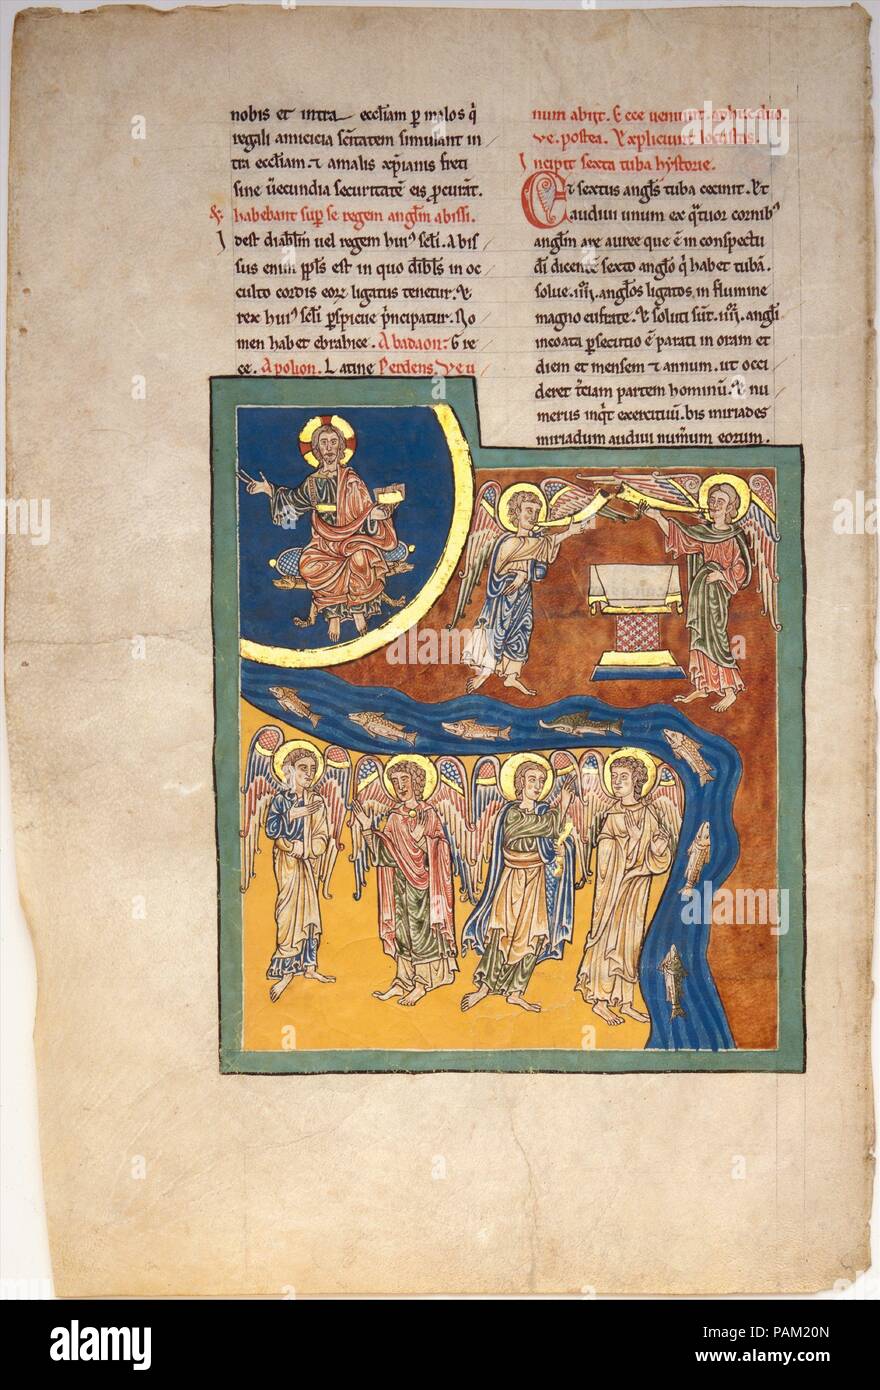 nobis et intra eccl̄iam p̱ malos q̄
regali amicicia sc̄itatem simulant in
tra eccl̄iam. ⁊ amalis xp̄ianis freti
sine ūecundia securitatē eis p̱curāt.
⁊ habebant sup̱ se regem angl̄m abissi.
Idest diabl̄m uel regem hui⁹ sc̄li. Abis
sus enim pp̄ls est in quo dīabl̄s in oc
culto cordis eorꝝ ligatus tenetur. ⁊
rex hui⁹ sc̄li p̱spicue p̄ncipatur. No
men habet ebraice. Abadaon: Gre
ce. Apolion. Latine Perdens. Ve u
num abiit. ⁊ ecce ueniunt adhuc duo
ve. postea. Expliciunt locustas.
Incipit sexta tuba hystorie.
Et sextus angl̄s tuba cecinit. Et
audiui unum ex q̄tuor cornib⁹
angl̄m are auree que ē in conspectu
dī dicentē sexto angl̄o q̄ habet tubā.
solue .iiii. angl̄os ligatos in flumine
magno eufrate. ⁊ soluti sūt .iiii. angl̄i
incoata p̱secutio ē parati in oram et
diem et mensem et annum. ut occi
deret t̄ciam partem hominū. ⁊ nu
merus inq̄t exercituū. bis miriades
miriadum audiui num̄um eorum.
alamy
Image ID: PAM20N
www.alamy.com